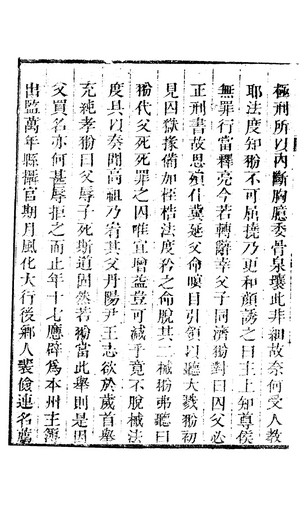 極刑所以內斷胸臆委骨泉壤此非細故奈何受人教
耶法度知翂不可屈撓乃更和顏誘之曰主上知尊侯
無罪行當釋亮今若轉辭幸父子同濟翂對曰囚父必
正刑書故思殞仆冀延父命嗔目引領以聽大戮翂初
見囚獄掾備加桎梏法度矜之命脫其二械翂弗聽曰
翂代父死死罪之囚唯宜增益豈可減乎竟不脫械法
度具以奏聞高祖乃宥其父丹陽尹王志欲於歲首舉
充純孝翂曰父辱子死斯道固然若翂當此舉則是因
父買名亦何甚辱拒之而止年十七應辟為本州主簿
出監萬年縣攝官期月風化大行後鄉人裴儉連名薦